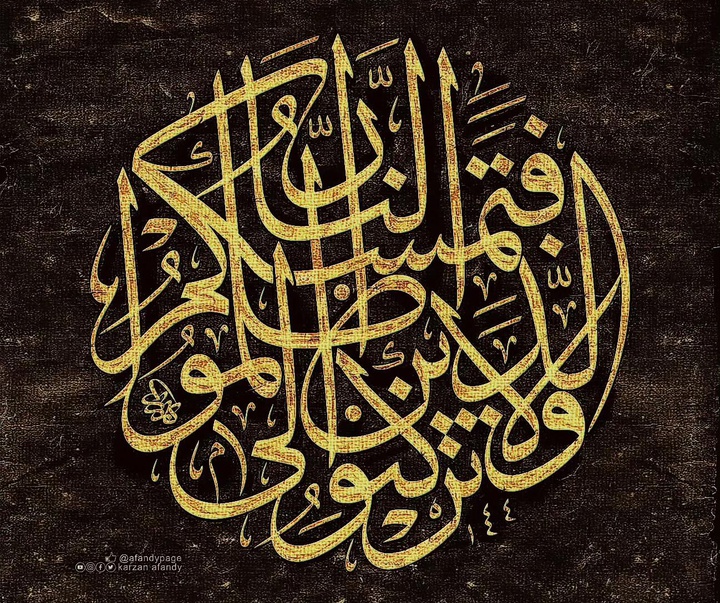 ولا تركنوا إلى
الذين ظلموا
فتمسكم النار
١٤٤
@afandypage
karzan afandy